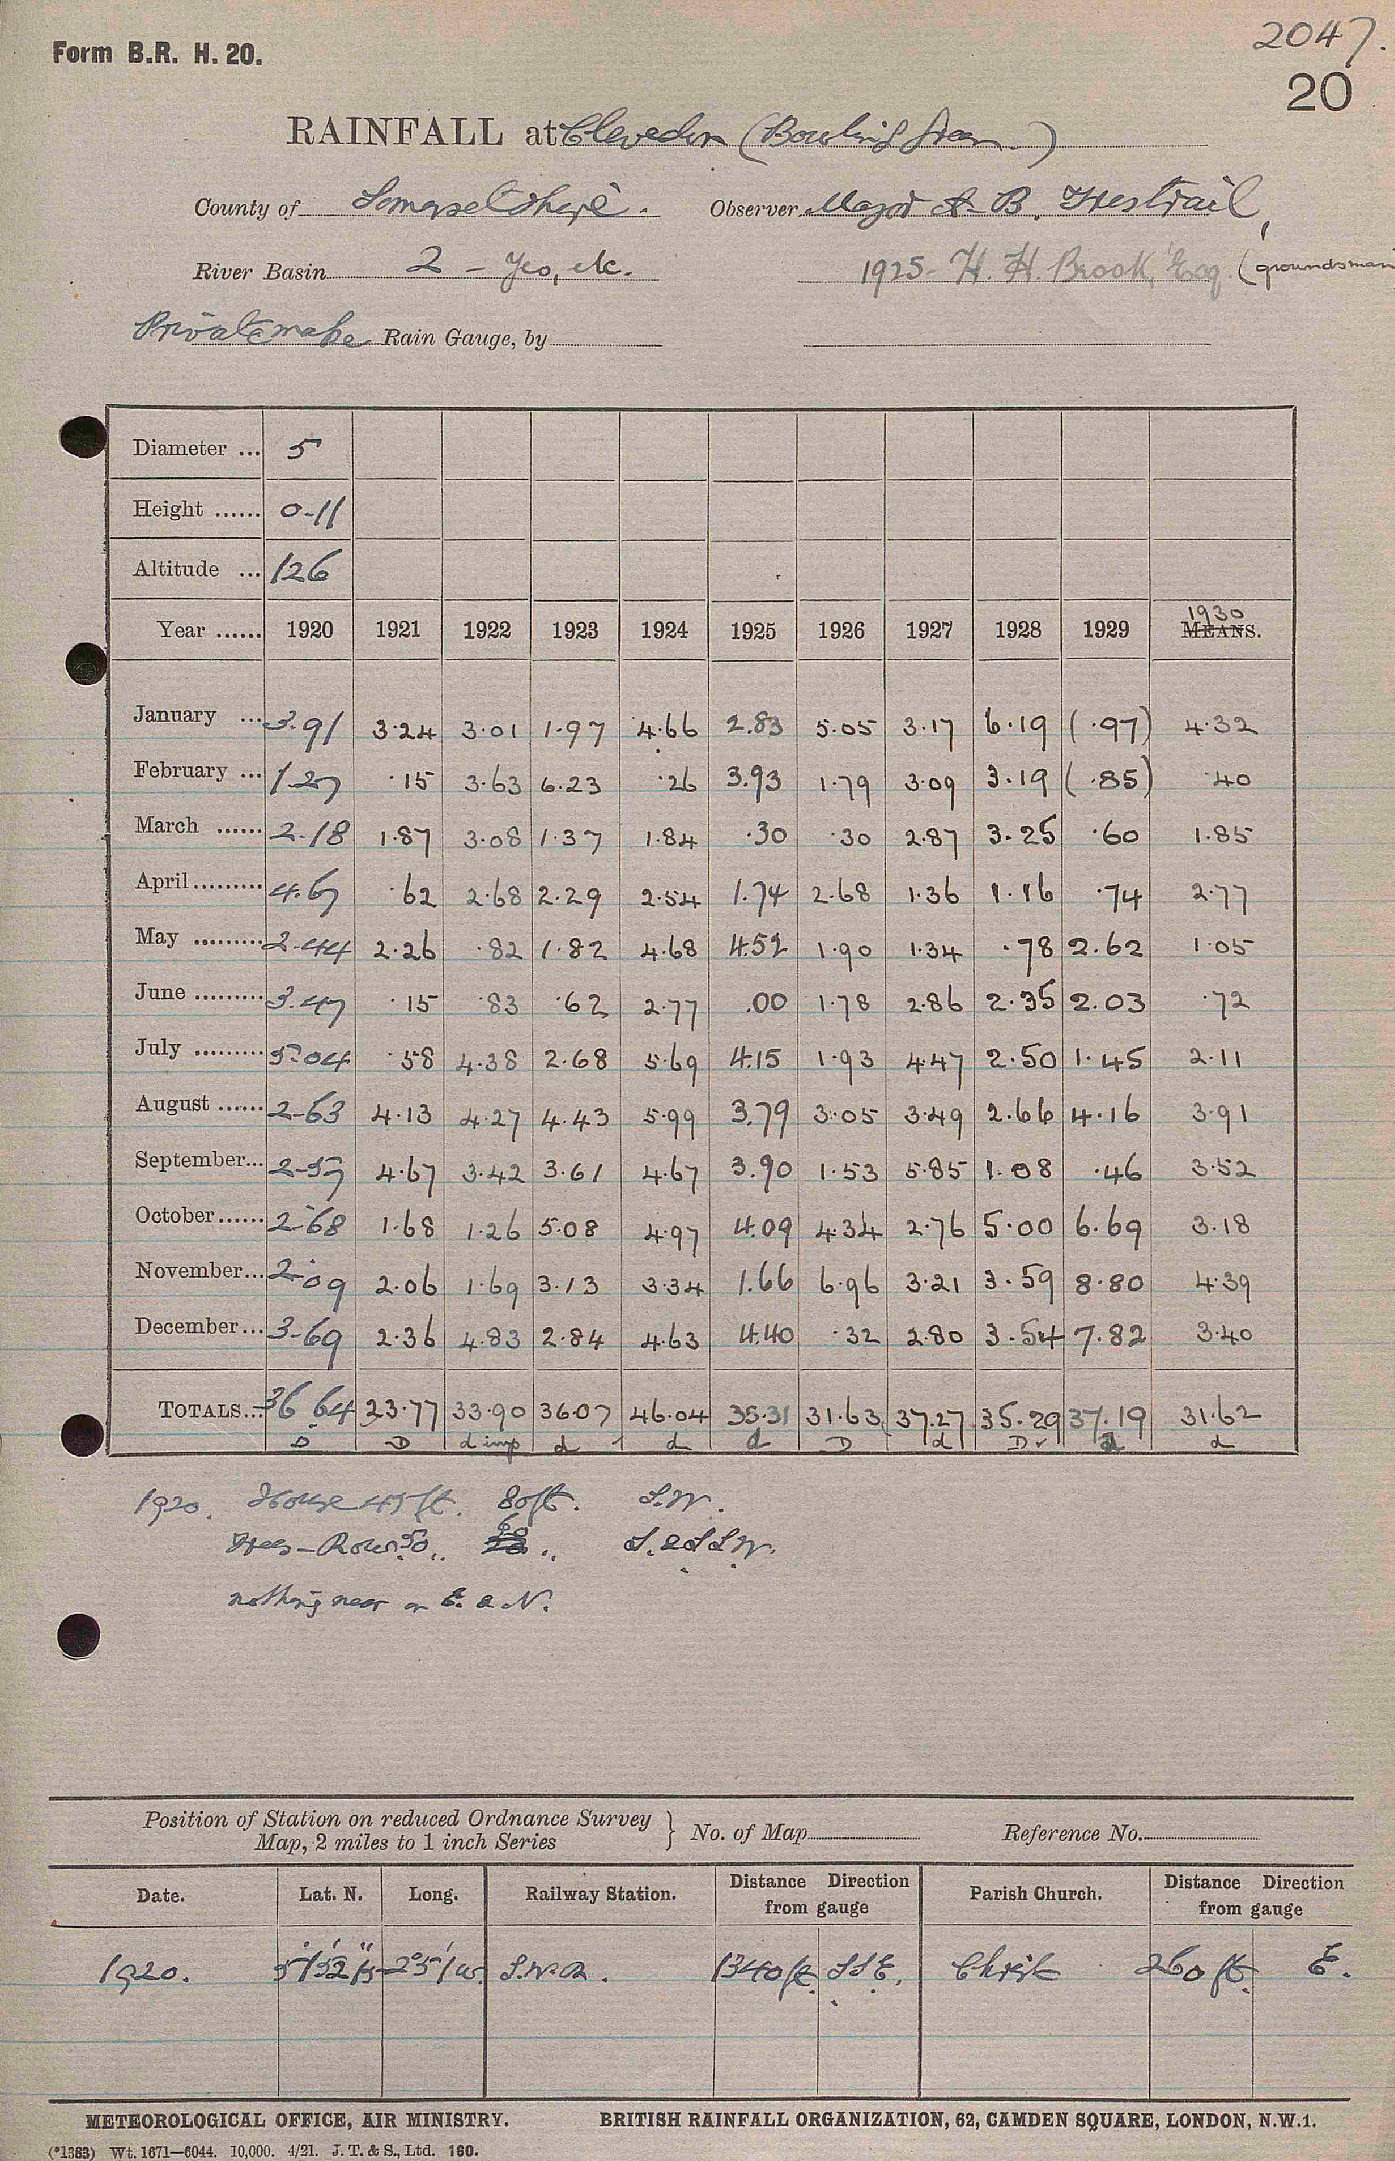 Form B.R. H. 20.
2047.
20
RAINFALL at Clevedon (Bowling Green)
County of Somersetshire. Observer Major A. B.
River Basin 2 - Yeo, etc. 1925- H. H. Brook, Esq (groundsman
Private make Rain Gauge, by
Diameter ... 5
Height ...... 0-11
Altitude ... 126
Year ...... 1920 1921 1922 1923 1924 1925 1926 1927 1928 1929 1930 MEANS.
January ... 3.91 3.24 3.01 1.97 4.66 2.83 5.05 3.17 6.19 (.97) 4.32
February ... 1.27 .15 3.63 6.23 .26 3.93 1.79 3.09 3.19 (.85) .40
March ...... 2.18 1.87 3.08 1.37 1.84 .30 .30 2.87 3.25 .60 1.85
April ......... 4.67 .62 2.68 2.29 2.54 1.74 2.68 1.36 1.16 .74 2.77
May ......... 2.44 2.26 .82 1.82 4.68 4.52 1.90 1.34 .78 2.62 1.05
June ......... 3.47 .15 .83 .62 2.77 .00 1.78 2.86 2.35 2.03 .72
July ......... 5.04 .58 4.38 2.68 5.69 4.15 1.93 4.47 2.50 1.45 2.11
August ...... 2.63 4.13 4.27 4.43 5.99 3.79 3.05 3.49 2.66 4.16 3.91
September... 2.57 4.67 3.42 3.61 4.67 3.90 1.53 5.85 1.08 .46 3.52
October ...... 2.68 1.68 1.26 5.08 4.97 4.09 4.34 2.76 5.00 6.69 3.18
November... 2.09 2.06 1.69 3.13 3.34 1.66 6.96 3.21 3.59 8.80 4.39
December... 3.69 2.36 4.83 2.84 4.63 4.40 .32 2.80 3.54 7.82 3.40
TOTALS... 36.64 23.77 33.90 36.07 46.04 35.31 31.63 37.27 35.29 37.19 31.62
D D d imp d d d D d D d d
1920. House 45 ft. 80 ft. S.W.
Trees - Row 50 ,, 60 ,, S. & S.S.W.
nothing near on E. & N.
Position of Station on reduced Ordnance Survey
Map, 2 miles to 1 inch Series } No. of Map Reference No.
Date. Lat. N. Long. Railway Station. Distance Direction from gauge Parish Church. Distance Direction from gauge
1920. 51°52'15" 2°51'W. 1340 ft. SSE. Christ 260 ft. E.
METEOROLOGICAL OFFICE, AIR MINISTRY. BRITISH RAINFALL ORGANIZATION, 62, CAMDEN SQUARE, LONDON, N.W.1.
(*1383) Wt. 1671—6044. 10,000. 4/21. J. T. & S., Ltd. 160.